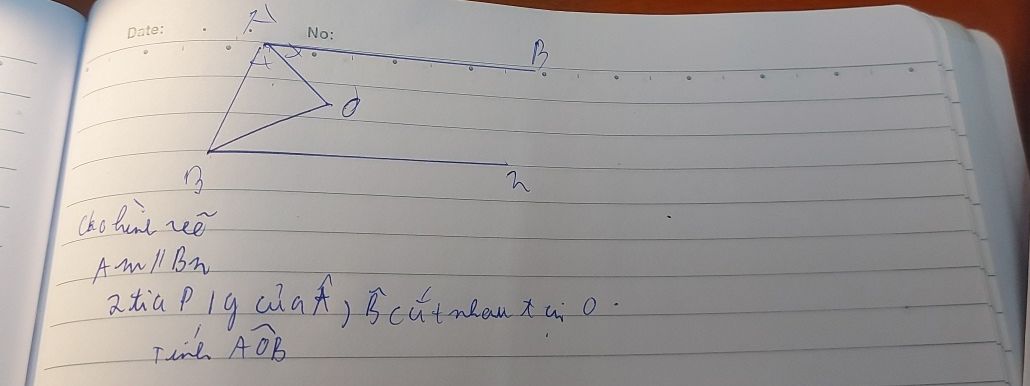 Date: No:
A B
O
B n
Cho hình vẽ
Am // Bn
2 tia P/g của Â, B̂ cắt nhau tại O.
Tính AÔB